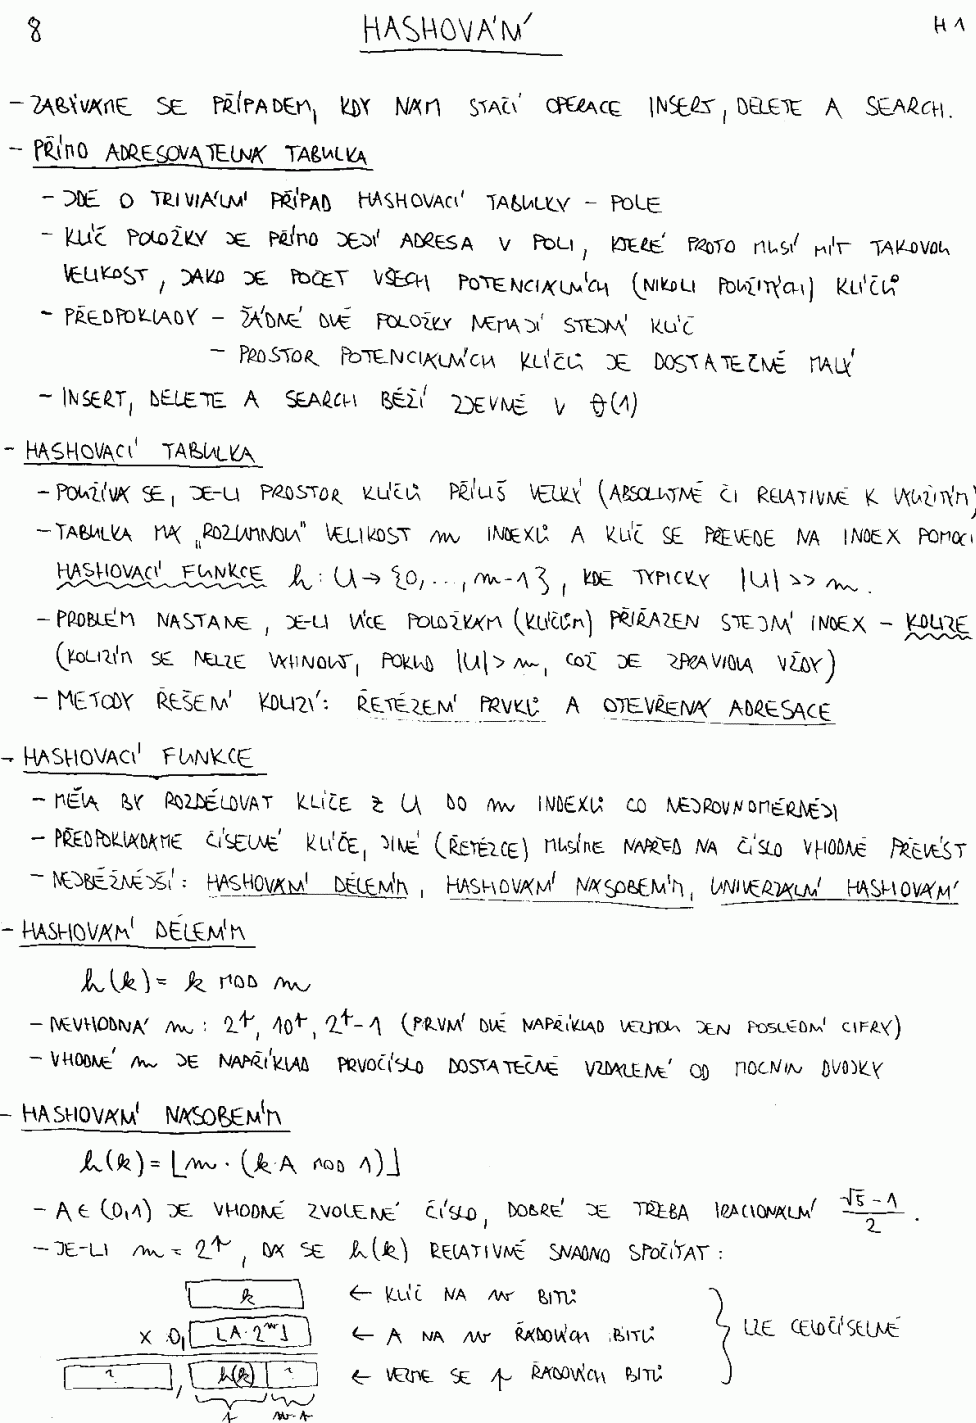 8 HASHOVÁNÍ H1
- ZABÝVÁME SE PŘÍPADEM, KDY NÁM STAČÍ OPERACE INSERT, DELETE A SEARCH.
- PŘÍMO ADRESOVATELNÁ TABULKA
- JDE O TRIVIÁLNÍ PŘÍPAD HASHOVACÍ TABULKY - POLE
- KLÍČ POLOŽKY JE PŘÍMO JEJÍ ADRESA V POLI, KTERÉ PROTO MUSÍ MÍT TAKOVOU
VELIKOST, JAKO JE POČET VŠECH POTENCIÁLNÍCH (NIKOLI POUŽITÝCH) KLÍČŮ
- PŘEDPOKLADY - ŽÁDNÉ DVĚ POLOŽKY NEMAJÍ STEJNÝ KLÍČ
- PROSTOR POTENCIÁLNÍCH KLÍČŮ JE DOSTATEČNĚ MALÝ
- INSERT, DELETE A SEARCH BĚŽÍ ZJEVNĚ V Θ(1)
- HASHOVACÍ TABULKA
- POUŽÍVÁ SE, JE-LI PROSTOR KLÍČŮ PŘÍLIŠ VELKÝ (ABSOLUTNĚ ČI RELATIVNĚ K VYUŽITÝM)
- TABULKA MÁ „ROZUMNOU" VELIKOST m INDEXŮ A KLÍČ SE PŘEVEDE NA INDEX POMOCÍ
HASHOVACÍ FUNKCE h: U → {0,...,m-1}, KDE TYPICKY |U| >> m.
- PROBLÉM NASTANE, JE-LI VÍCE POLOŽKÁM (KLÍČŮM) PŘIŘAZEN STEJNÝ INDEX - KOLIZE
(KOLIZÍM SE NELZE VYHNOUT, POKUD |U| > m, COŽ JE ZPRAVIDLA VŽDY)
- METODY ŘEŠENÍ KOLIZÍ: ŘETĚZENÍ PRVKŮ A OTEVŘENÁ ADRESACE
- HASHOVACÍ FUNKCE
- MĚLA BY ROZDĚLOVAT KLÍČE Z U DO m INDEXŮ CO NEJROVNOMĚRNĚJI
- PŘEDPOKLÁDÁME ČÍSELNÉ KLÍČE, JINÉ (ŘETĚZCE) MUSÍME NAPŘED NA ČÍSLO VHODNĚ PŘEVÉST
- NEJBĚŽNĚJŠÍ: HASHOVÁNÍ DĚLENÍM, HASHOVÁNÍ NÁSOBENÍM, UNIVERZÁLNÍ HASHOVÁNÍ
- HASHOVÁNÍ DĚLENÍM
h(k) = k MOD m
- NEVHODNÁ m: 2^p, 10^p, 2^p-1 (PRVNÍ DVĚ NAPŘÍKLAD VEZMOU JEN POSLEDNÍ CIFRY)
- VHODNÉ m JE NAPŘÍKLAD PRVOČÍSLO DOSTATEČNĚ VZDÁLENÉ OD MOCNIN DVOJKY
- HASHOVÁNÍ NÁSOBENÍM
h(k) = ⌊m · (k·A MOD 1)⌋
- A ∈ (0,1) JE VHODNĚ ZVOLENÉ ČÍSLO, DOBRÉ JE TŘEBA IRACIONÁLNÍ (√5 - 1)/2.
- JE-LI m = 2^p, DÁ SE h(k) RELATIVNĚ SNADNO SPOČÍTAT:
k ← KLÍČ NA w BITŮ
x 0, ⌊A·2^w⌋ ← A NA w ŘÁDOVÝCH BITŮ } LZE CELOČÍSELNĚ
? , h(k) ? ← VEZME SE p ŘÁDOVÝCH BITŮ
p w-p